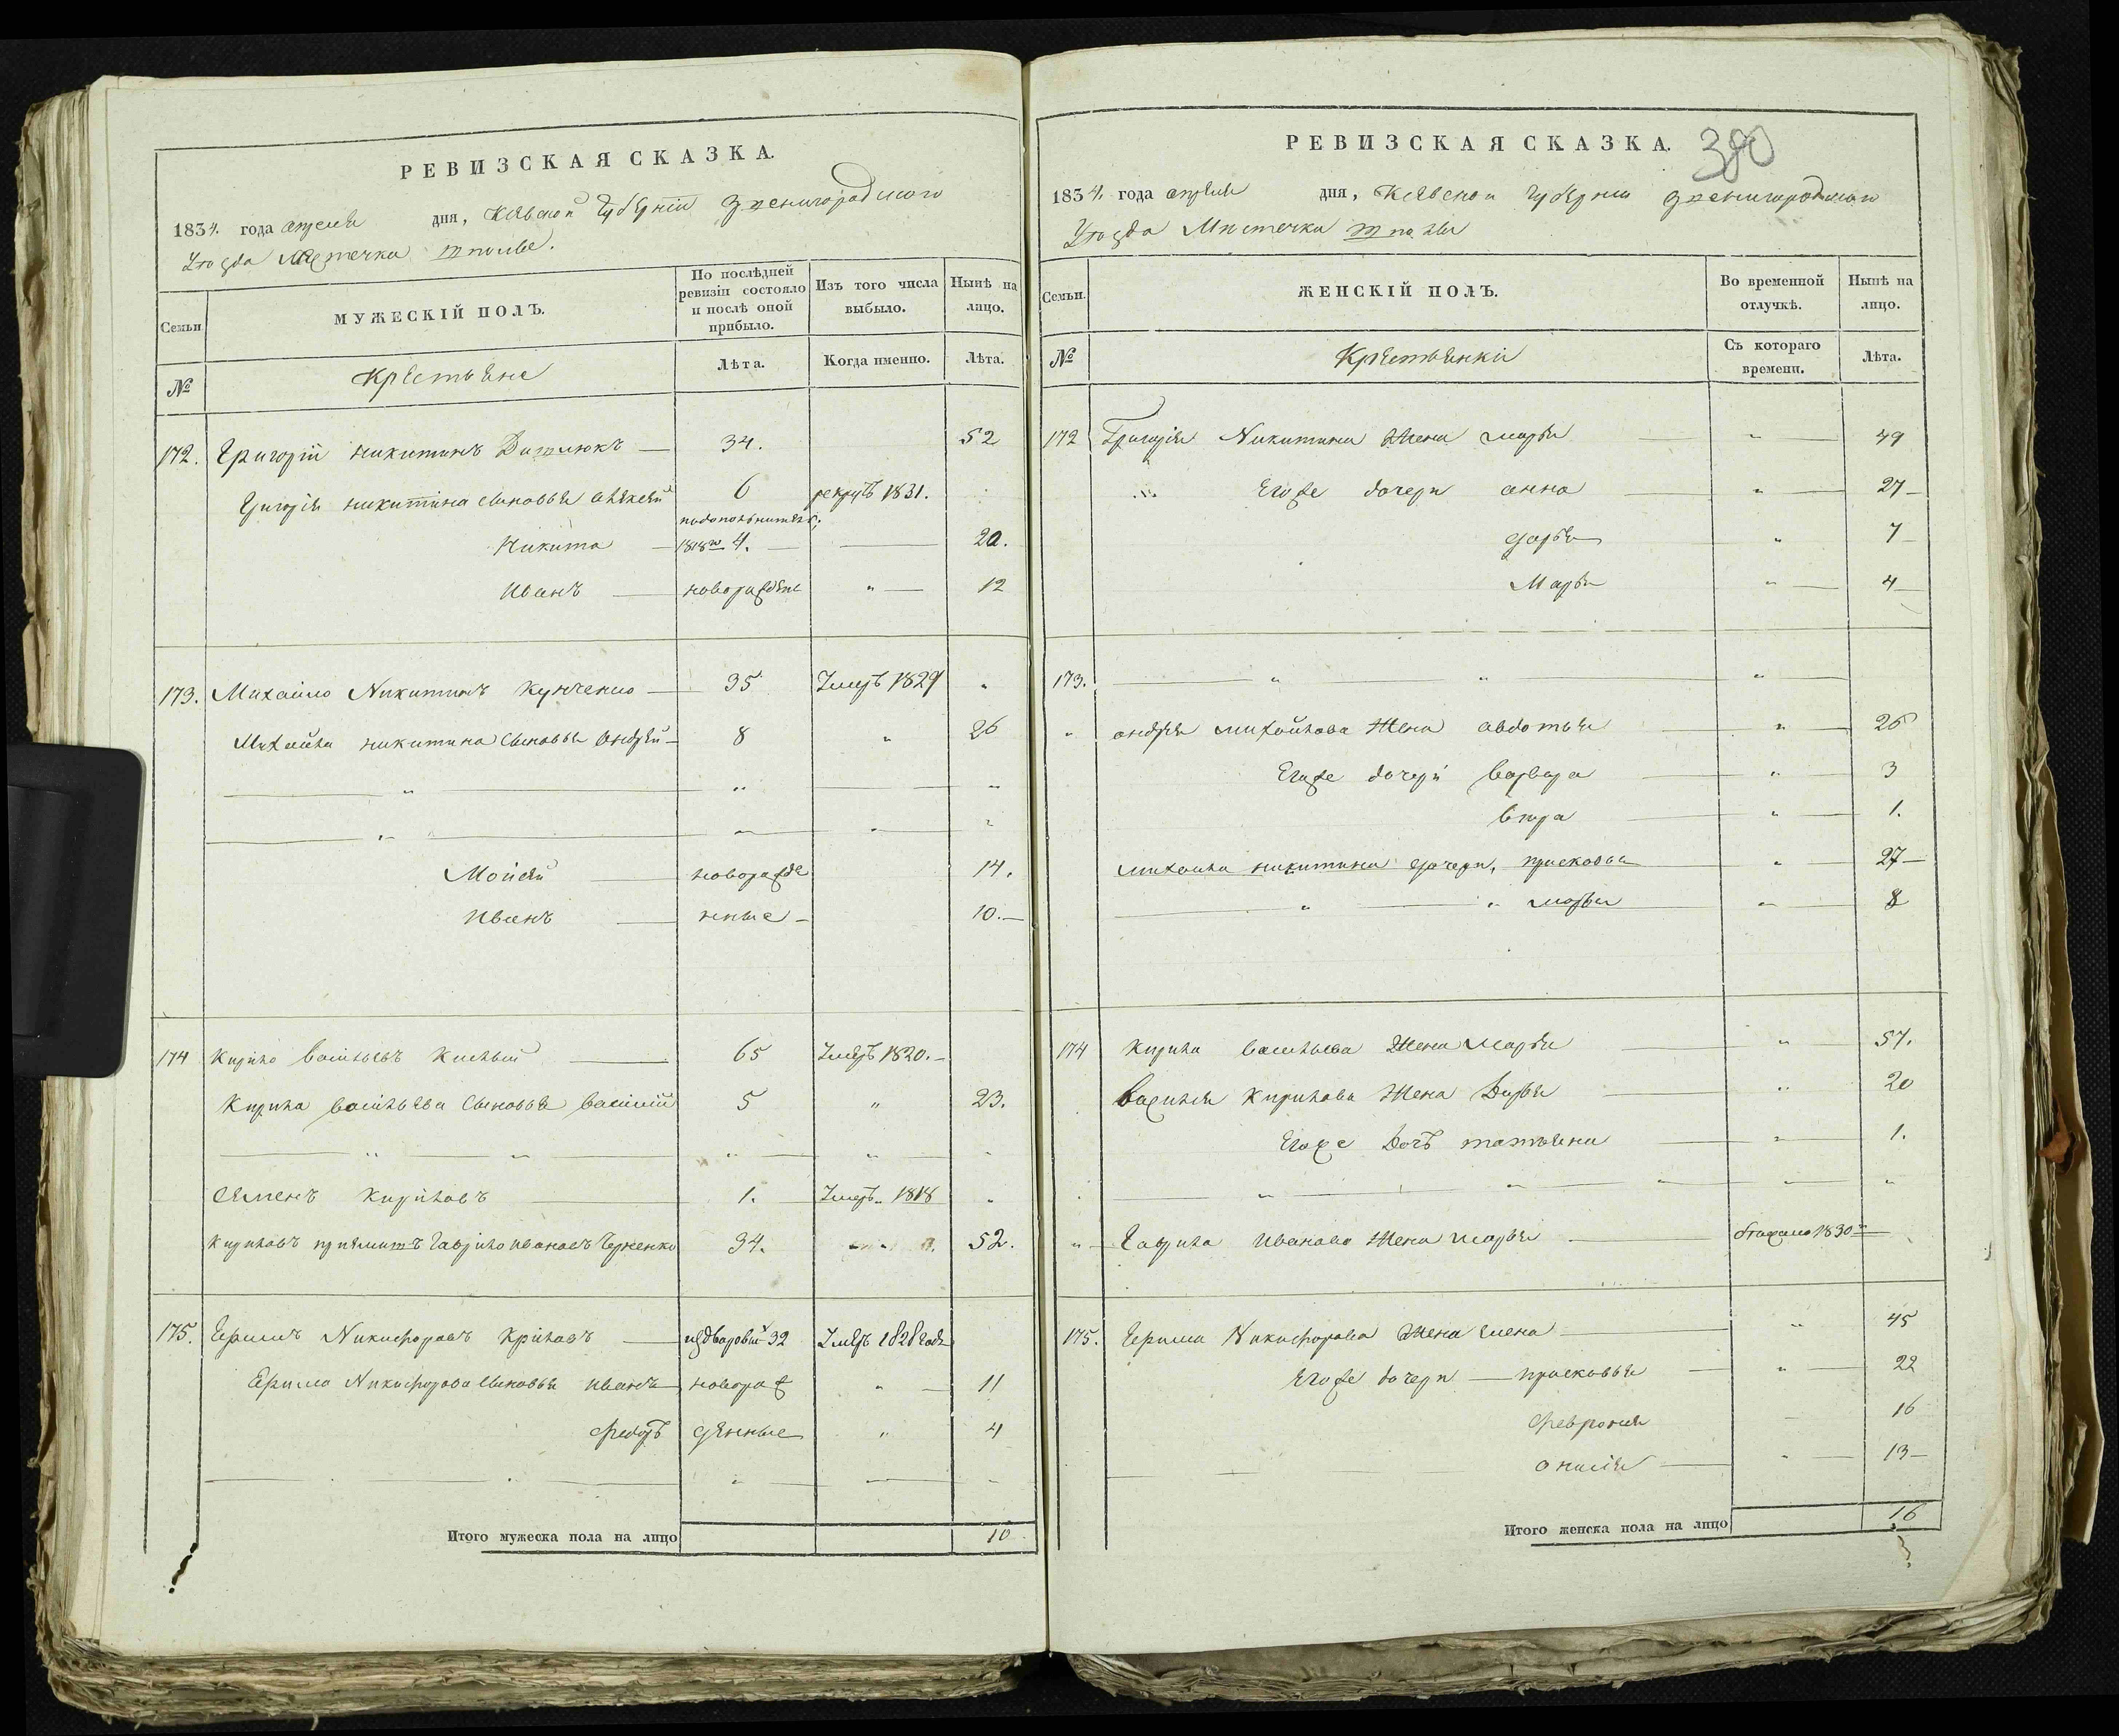 РЕВИЗСКАЯ СКАЗКА.
1834. года апреля дня, Киевской Губернии Звенигородского
Уезда Местечка Тполве.
Семьи
МУЖЕСКІЙ ПОЛЪ.
По послѣдней ревизіи состояло и послѣ оной прибыло.
Изъ того числа выбыло.
Нынѣ на лицо.
№
Крестьяне
Лѣта.
Когда именно.
Лѣта.
172. Григорій Никитинъ — 34. 52
Григорія Никитина сыновья Алексей 6 рекрутъ 1831.
Никита — 1818 го 4. — 20.
Иванъ — новорожденъ " — 12
173. Михайло Никитинъ Кунченко — 35 Умеръ 1829 "
Михайла Никитина Сыновья Андрей — 8 " 26
Мойсей — новорожде 14.
Иванъ — нные — 10.—
174 Кирило Васильевъ Кислый — 65 Умеръ 1820. —
Кирила Васильева Сыновья Василий 5 " 23.
Семенъ Кириловъ — 1. Умеръ 1818 "
Кириловъ Гаврило Ивановъ 34. 52.
175. Ефимъ Никифоровъ — 32 Умеръ 1828 года
Ефима Никифорова Сыновья Иванъ — новорож " — 11
Федотъ денные " 4
Итого мужеска пола на лицо 10
РЕВИЗСКАЯ СКАЗКА. 380
1834. года апреля дня, Киевской Губернии Звенигородского
Уезда Местечка
Семьи.
ЖЕНСКІЙ ПОЛЪ.
Во временной отлучкѣ.
Нынѣ на лицо.
№
Крестьянки
Съ котораго времени.
Лѣта.
172 Григорія Никитина Жена Марья " 49
Егоже дочери Анна " 27—
Дарья " 7—
Марья " 4—
173. " " "
" Андрея Михайлова Жена Авдотья " 26
Егоже дочери Варвара " 3
Вера " 1.
Михаила Никитина Дочери, Прасковья " 27—
" " Марья " 8
174 Кирила Васильева Жена Марья " 57.
Василия Кирилова Жена Дарья " 20
Егоже Дочь Татьяна " 1.
" Гаврила Иванова Жена Марья 1830
175. Ефима Никифорова Жена Елена " 45
Егоже дочери — Прасковья " 22
Феврония 16
13—
Итого женска пола на лицо 16